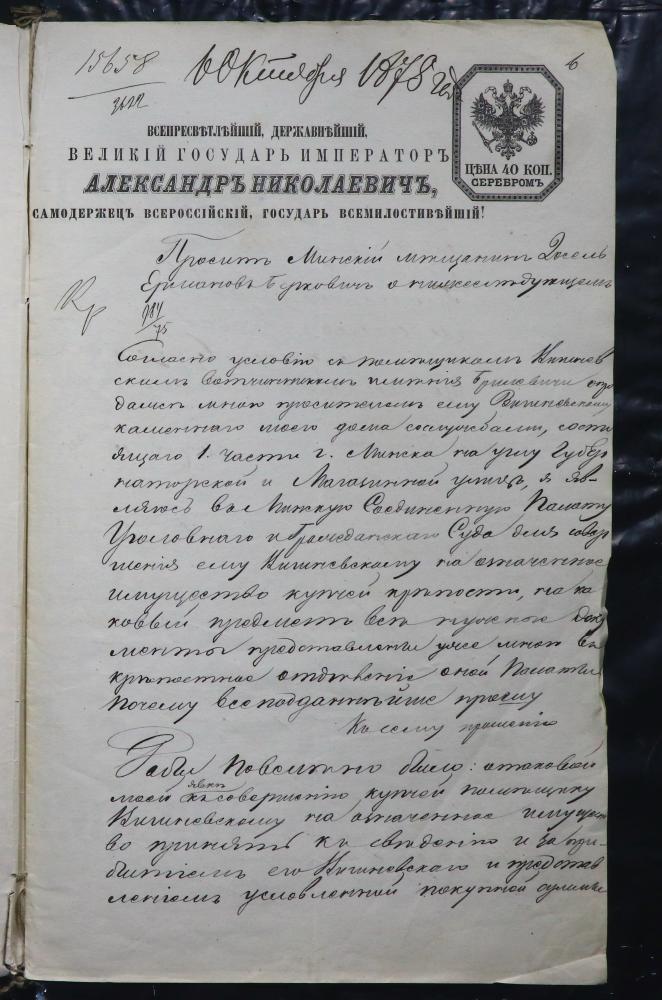 15658
3622
6 Октября 1878 года
6
ЦѢНА 40 КОП.
СЕРЕБРОМЪ
ВСЕПРЕСВѢТЛѢЙШІЙ, ДЕРЖАВНѢЙШІЙ,
ВЕЛИКІЙ ГОСУДАРЬ ИМПЕРАТОРЪ
АЛЕКСАНДРЪ НИКОЛАЕВИЧЪ,
САМОДЕРЖЕЦЪ ВСЕРОССІЙСКІЙ, ГОСУДАРЬ ВСЕМИЛОСТИВѢЙШІЙ!
Проситъ Минскій мѣщанинъ Іосель
Берковичъ о нижеслѣдующемъ
Кр
984/75
Согласно условію съ помѣщикомъ
вотчинникомъ имѣнія про
даже мною просителемъ ему
каменнаго моего дома со службами, состо
ящаго 1. части г. Минска на углу Губер
наторской и Магазинной улицъ, я яв-
ляюсь въ Минскую Соединенную Палату
Уголовнаго и Гражданскаго Суда для совер
шенія ему на означенное
имущество купчей крѣпости, на ка
ковый предметъ всѣ нужные доку
менты представлены уже мною въ
крѣпостное отдѣленіе оной Палаты
почему всеподданнѣйше прошу
Къ сему прошенію
Дабы повелѣно было: о таковой
моей явкѣ къ совершенію купчей помѣщику
на означенное имущест
во принять къ свѣдѣнію и за при-
бытіемъ его и представ
леніемъ условленной покупной суммы